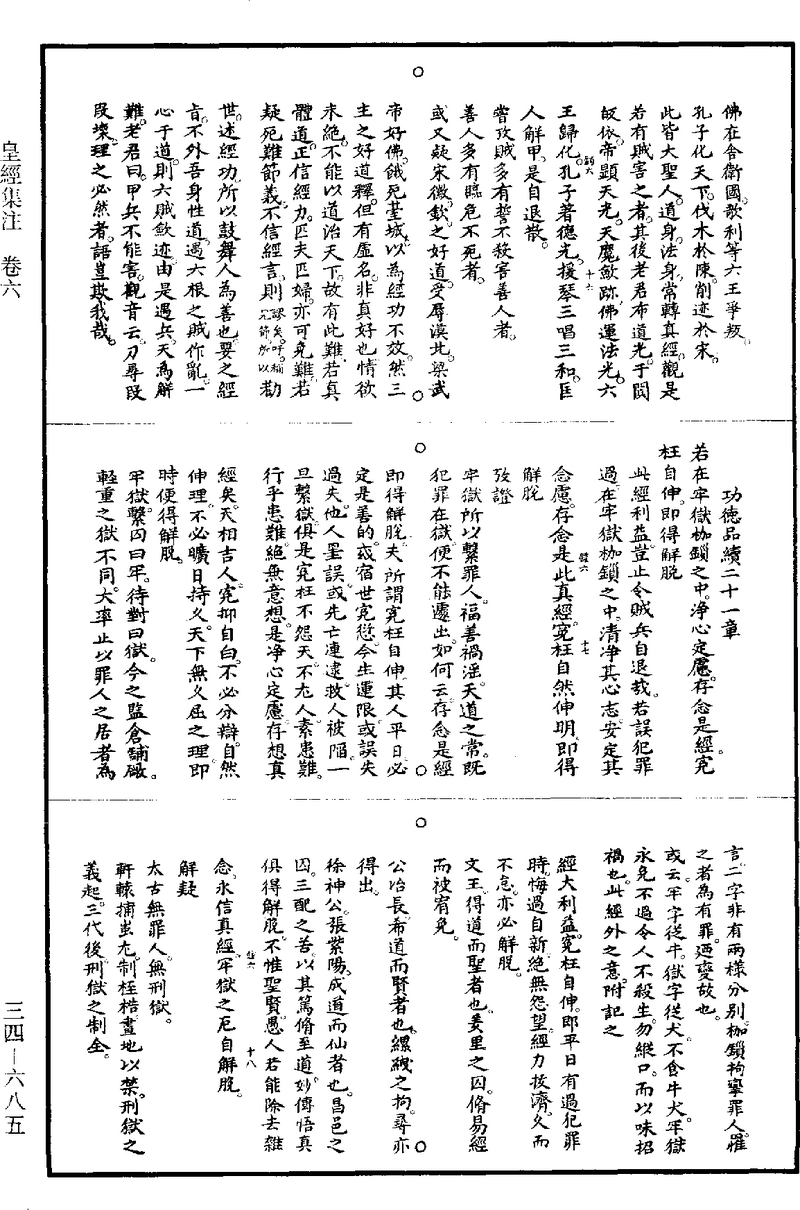 皇經集注　卷六
三四—六八五
佛在舍衛國。歌利等六王爭叛。
孔子化天下。伐木於陳。削迹於宋。
此皆大聖人。道身法身。常轉真經。觀是
若有賊害之者。其後老君布道光。于闐
皈依。帝顯天光。天魔斂跡。佛運法光。六
王歸化。孔子著德光。援琴三唱三和。匡
人解甲。是自退散。
嘗攷賊多有誓不殺害善人者。
善人多有臨危不死者。
或又疑宋徽欽之好道。受辱漠北。梁武
帝好佛。餓死臺城。以為經功不效。然三
主之好道釋。但有虛名。非真好也。情欲
未絕。不能以道治天下。故有此難。若真
體道。正信經力。匹夫匹婦。亦可免難。若
疑死難節義。不信經言。則謬矣。呼稱完節所以勸
世。述經功所以鼓舞人為善也。要之經
旨。不外吾身性道。遇六根之賊作亂。一
心于道。則六賊斂迹。由是遇兵。天為解
難。老君曰。甲兵不能害。觀音云。刀尋段
段壞。理之必然者。語豈欺我哉。
功德品續二十一章
若在牢獄枷鎖之中。淨心定慮。存念是經。寃
枉自伸。即得解脫
此經利益。豈止令賊兵自退哉。若誤犯罪
過。在牢獄枷鎖之中。清淨其心志。安定其
念慮。存念是此真經。寃枉自然伸明。即得
解脫
攷證
牢獄所以繫罪人。福善禍淫。天道之常。既
犯罪在獄。便不能遽出。如何云存念是經
即得解脫。夫所謂寃枉自伸。其人平日必
定是善的。或宿世寃愆。今生運限。或誤失
過失。他人罣誤。或先亡連逮。救人被陷。一
旦繫獄。俱是寃枉。不怨天。不尤人。素患難。
行乎患難。絕無意想。是淨心定慮。存想真
經矣。天相吉人。寃抑自白。不必分辯。自然
伸理。不必曠日持久。天下無久屈之理。即
時便得解脫。
牢獄。繫囚曰牢。待對曰獄。今之監倉舖礅
輕重之獄不同。大率止以罪人之居者為
言。二字非有兩樣分別。枷鎖拘攣罪人。罹
之者為有罪。迺變故也。
或云。牢字從牛。獄字從犬。不食牛犬。牢獄
永免。不過令人不殺生。勿縱口。而以味招
禍也。此經外之意。附記之
經大利益。寃枉自伸。即平日有過犯罪
時。悔過自新。絕無怨望。經力拔濟。久而
不怠。亦必解脫。
文王得道而聖者也。羑里之囚。脩易經
而被宥免。
公冶長希道而賢者也。縲絏之拘。尋亦
得出。
徐神公張紫陽。成道而仙者也。昌邑之
囚。三配之苦。以其篤脩至道。妙傳悟真
俱得解脫。不惟聖賢。愚人若能除去雜
念。永信真經。牢獄之厄自解脫。
解疑
太古無罪人。無刑獄。
軒轅捕蚩尤。制桎梏。畫地以禁。刑獄之
義起。三代後刑獄之制全。